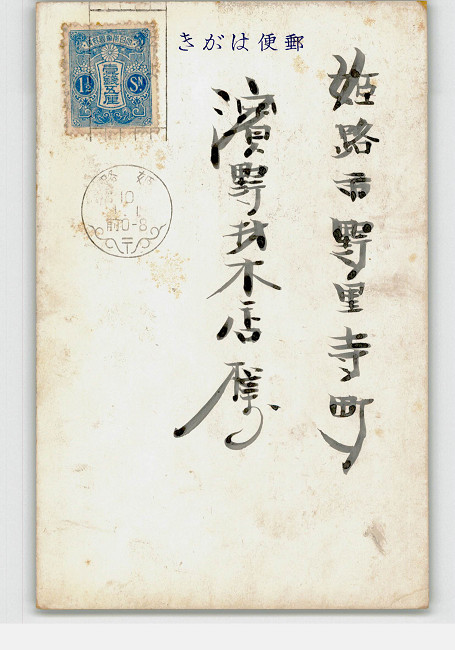 きがは便郵
姫路市野里寺町
濱野材木店
1½ Sn
壹錢五厘
姫路
10
1.1
前0-8
〒